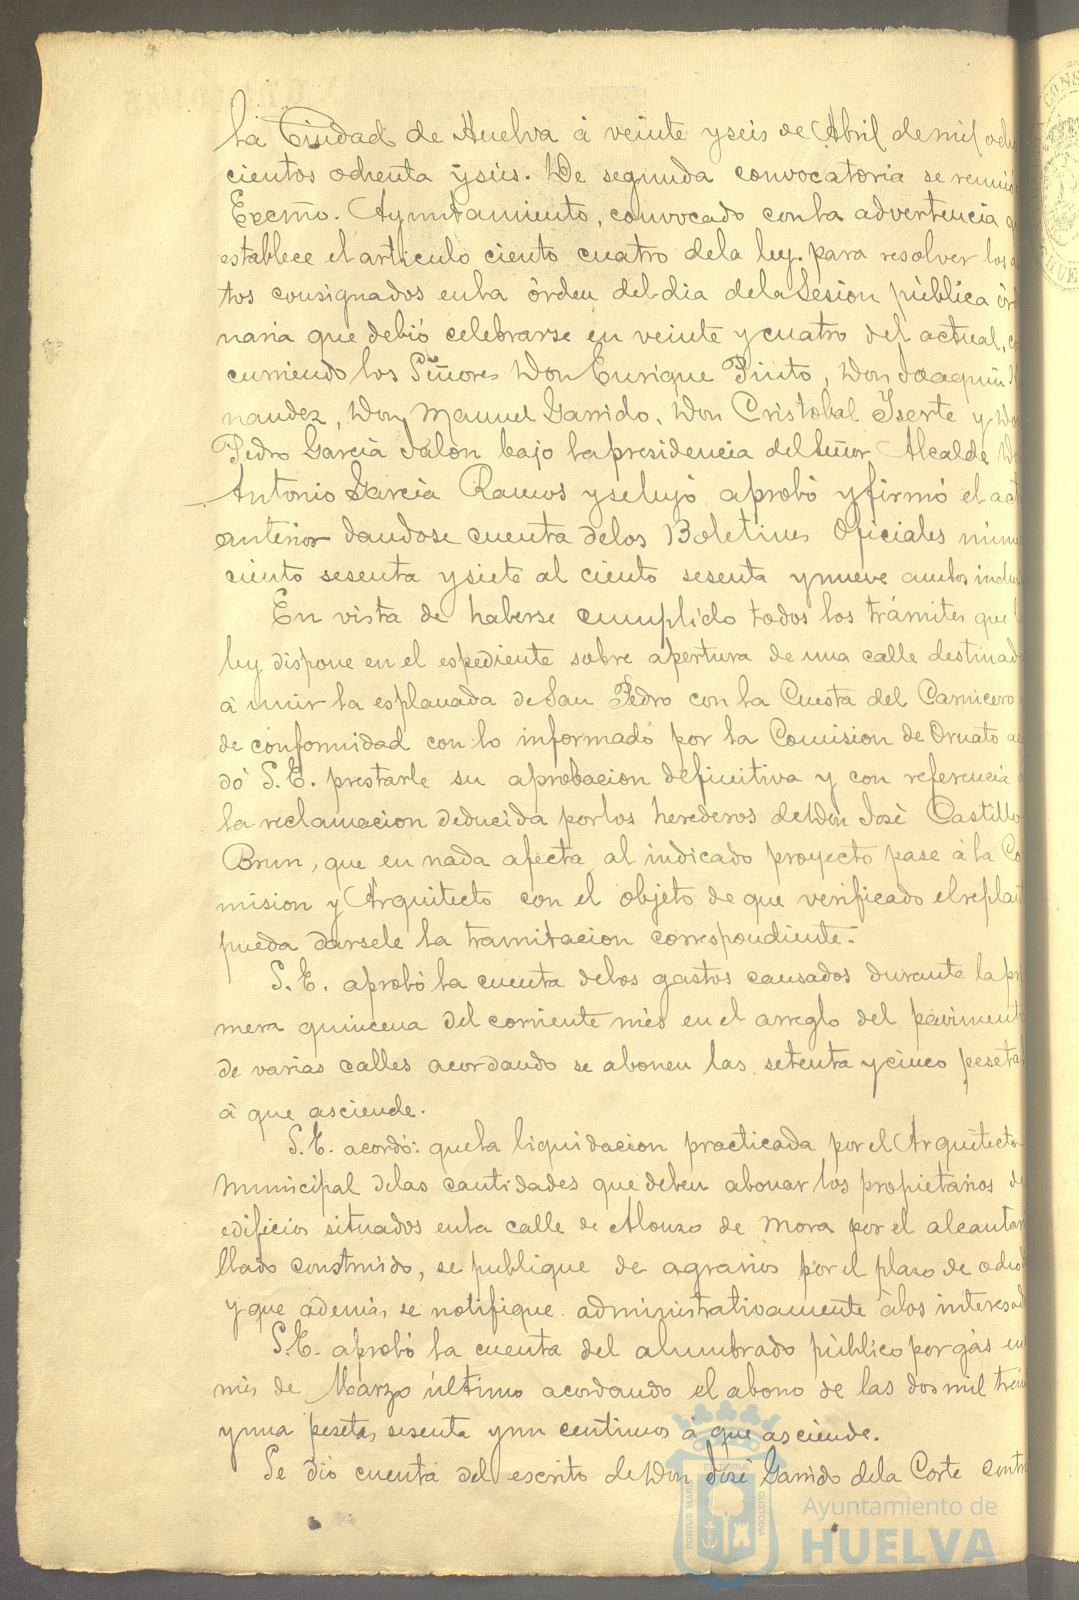 la Ciudad de Huelva á veinte y seis de Abril de mil ocho
cientos ochenta y seis. De segunda convocatoria se reunió
Excmo. Ayuntamiento, convocado con la advertencia q
establece el articulo ciento cuatro de la ley para resolver los a
tos consignados en la órden del dia de la Sesion pública órd
naria que debió celebrarse en veinte y cuatro del actual, co
curriendo los Señores Don Enrique Pinto, Don Joaquin
nandez, Don Manuel Garrido, Don Cristobal Iserte y Do
Pedro Garcia Jalòn bajo la presidencia del Señor Alcalde Do
Antonio Garcia Ramos y se leyó aprobó y firmó el act
anterior dandose cuenta de los Boletines Oficiales núme
ciento sesenta y siete al ciento sesenta y nueve ambos inclus
En vista de haberse cumplido todos los trámites que l
ley dispone en el espediente sobre apertura de una calle destinad
á unir la esplanada de San Pedro con la Cuesta del Carnicero
de conformidad con lo informado por la Comision de Ornato ac
dó S.E. prestarle su aprobacion definitiva y con referencia
la reclamacion deducida por los herederos de Don José Castillo
Brun, que en nada afecta al indicado proyecto pase á la Co
mision y Arquitecto con el objeto de que verificado el replant
pueda darsele la tramitacion correspondiente.
S.E. aprobó la cuenta de los gastos causados durante la pri
mera quincena del corriente mes en el arreglo del paviment
de varias calles acordando se abonen las setenta y cinco peseta
á que asciende.
S.E. acordó: que la liquidacion practicada por el Arquitecto
Municipal de las cantidades que deben abonar los propietarios de
edificios situados en la calle de Alonzo de Mora por el alcantar
llado construido, se publique de agravios por el plazo de ocho
y que ademas se notifique administrativamente á los interesad
S.E. aprobó la cuenta del alumbrado público por gas en
mes de Marzo último acordando el abono de las dos mil trein
y una pesetas sesenta y un centimos á que asciende.
Se dió cuenta del escrito de Don José Garrido de la Corte contr
PORTUS MARIS
ET TERRAE
CUSTODIA
Ayuntamiento de
HUELVA